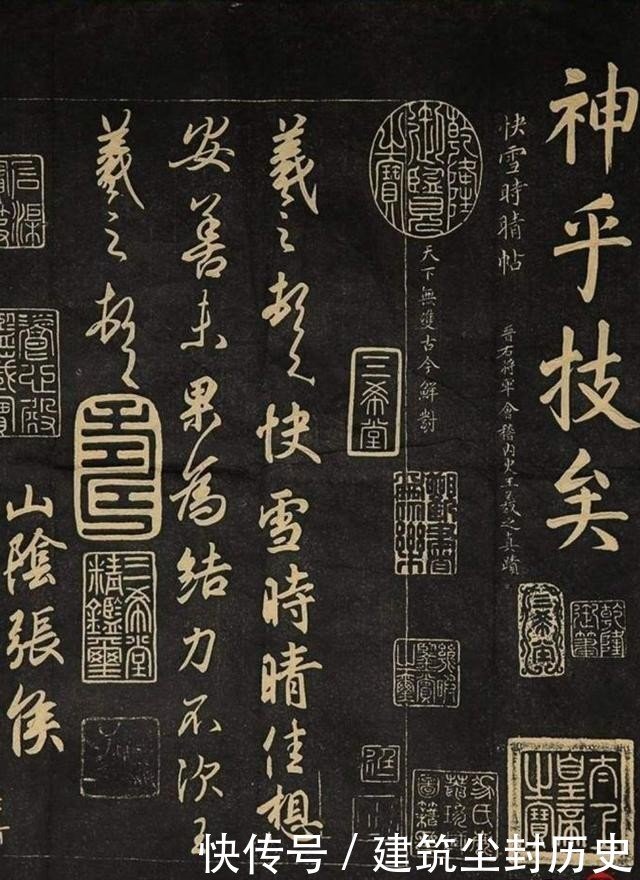 神乎技矣
快雪時晴帖
晉右將軍會稽內史王羲之真蹟
乾隆御筆
太上皇帝之寶
乾隆御覽之寶
天下無雙古今鮮對
三希堂
羲之頓首快雪時晴佳想
安善未果為結力不次王
羲之頓首
三希堂精鑑璽
山陰張侯
石渠寶笈
養心殿鑑藏寶
快传号 / 建筑尘封历史